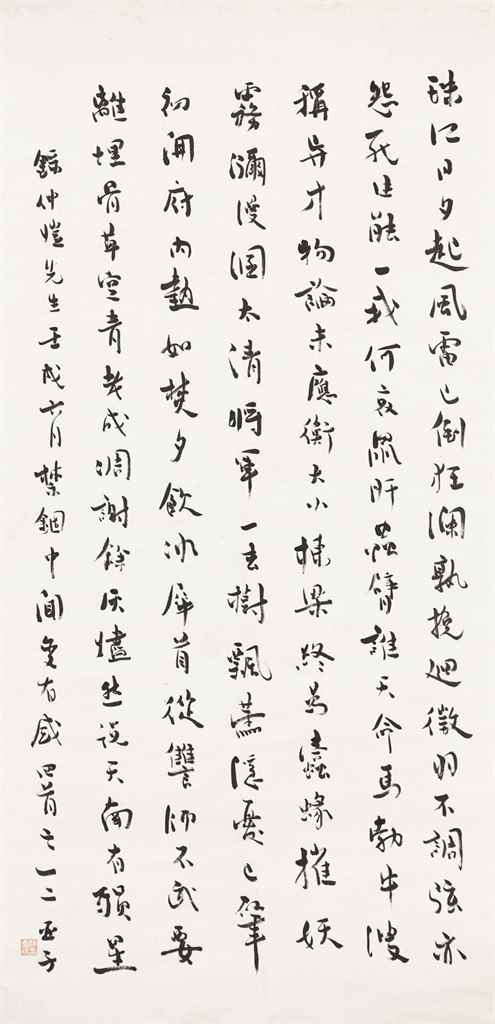 珠江日夕起風雷已倒狂瀾孰挽迴徵羽不調弦亦
怨死生能一我何哀鼠肝蟲臂誰天命馬勃牛溲
稱異才物論未應衡大小棟梁終為蠹蝝摧妖
霧瀰漫溷太清將軍一去樹飄隱憂已肇
初開府內熱如焚夕飲冰犀首從讐師不武要
離埋骨草空青老成凋謝餘灰燼愁說天南有殞星
錄仲愷先生壬戌六月禁錮中聞變有感四首之一二亞子